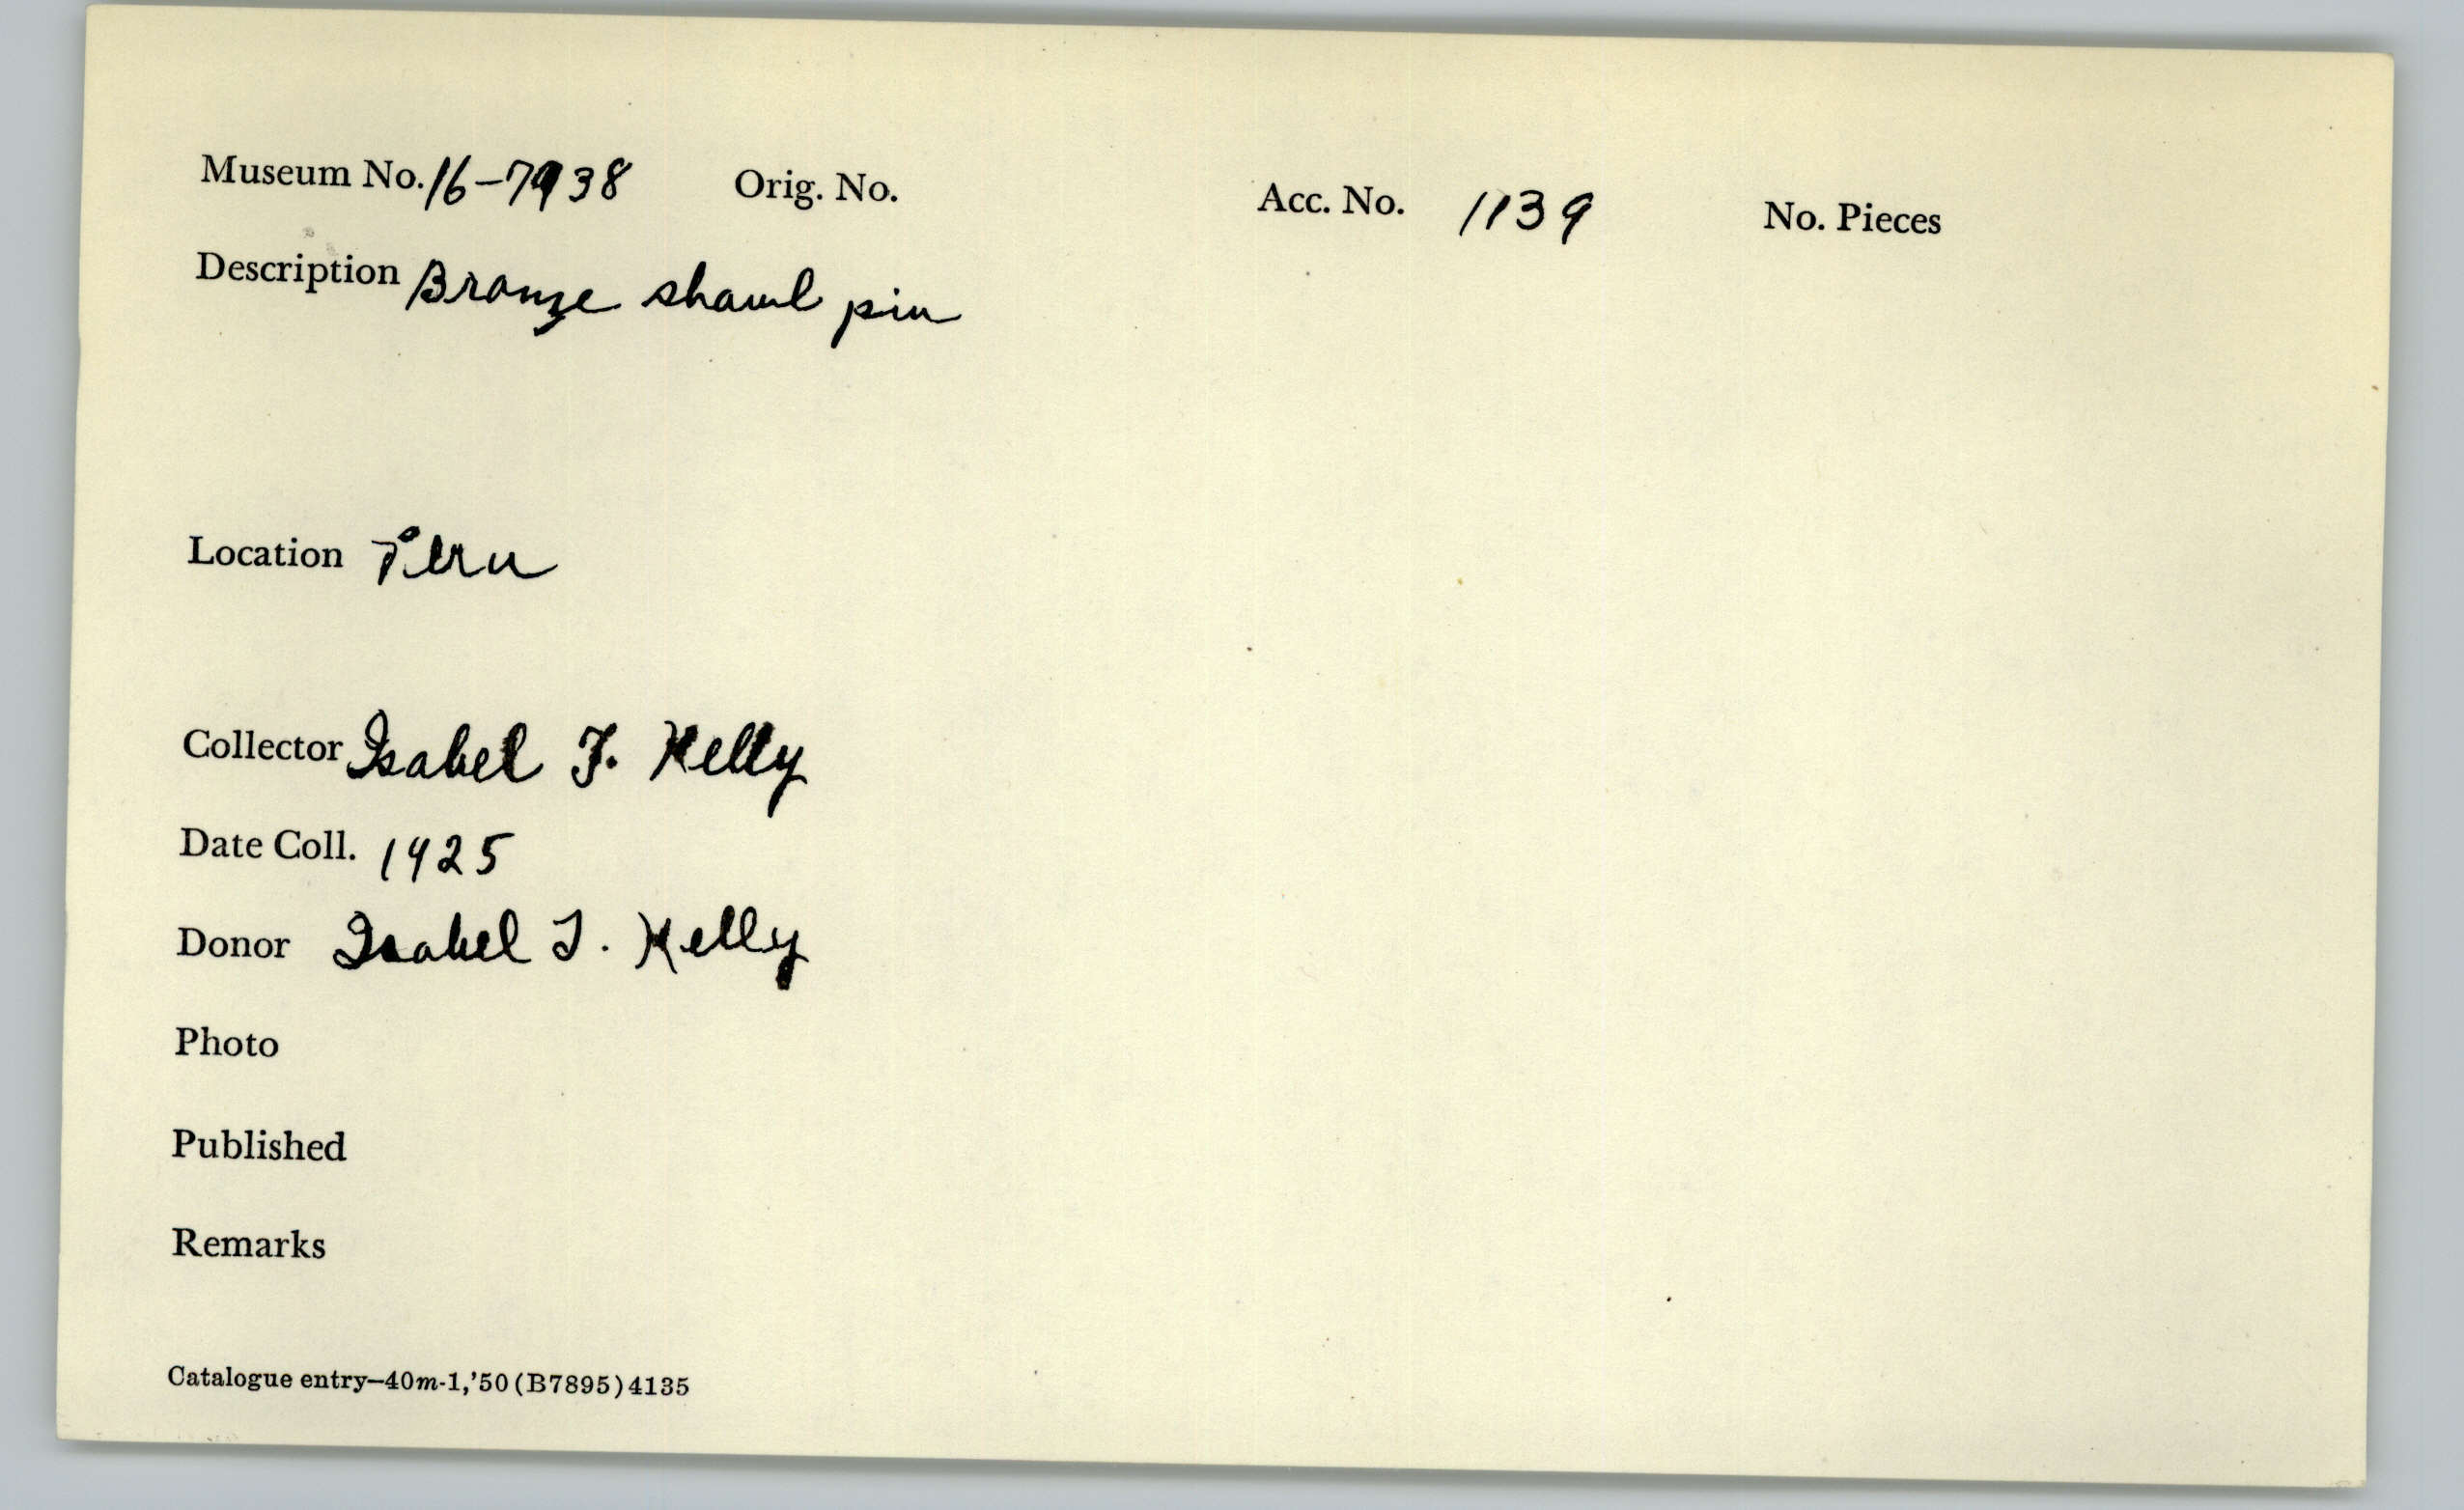 Museum No. 16-7938 Orig. No. Acc. No. 1139 No. Pieces
Description Bronze shawl pin
Location Peru
Collector Isabel T. Kelly
Date Coll. 1925
Donor Isabel T. Kelly
Photo
Published
Remarks
Catalogue entry—40m-1,'50(B7895)4135